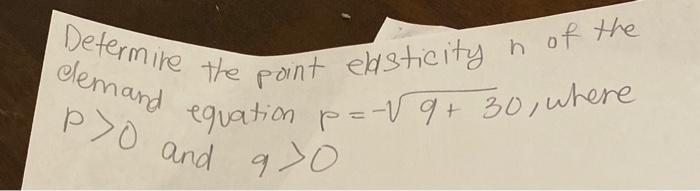 Determine the point elasticity n of the
demand equation p = -√9+ 30, where
p>0 and q>0